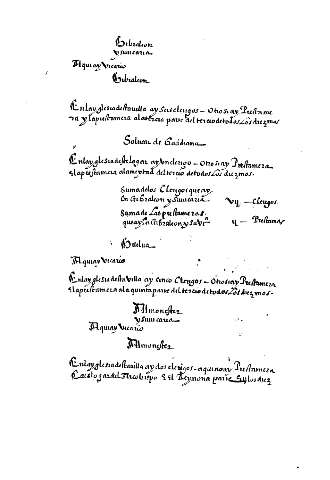 Gibraleon
y su vicaria
Aqui ay Vicario
Gibraleon
En la yglesia desta villa ay seis clerigos – Otrosi ay Prestame
ra y la prestamera al a tercia parte del tercio de todos Los diezmos
Solum de Gaidiana
En la yglesia deste lugar ay un clerigo – Otrosi ay Prestamera
y la prestamera a la meytad del tercio de todos Los diezmos.
Suma de los Clerigos que ay
En Gibraleon y su vicaria
Vij – Clerigos
Suma de Las prestameras
que ay en Gibraleon y su Vi^a
ij – Prestamas
Huelua
Aqui ay Vicario
En la yglesia desta Villa ay cinco Clerigos – Otrosi ay Prestamera
y la prestamera a la quinta parte del tercio de todos Los diezmos –
Almonester
y su vicaria
Aqui ay Vicario
Almonester
En la yglesia desta villa ay dos clerigos – aqui no ay Prestamera
del Arcobispo parte los diez